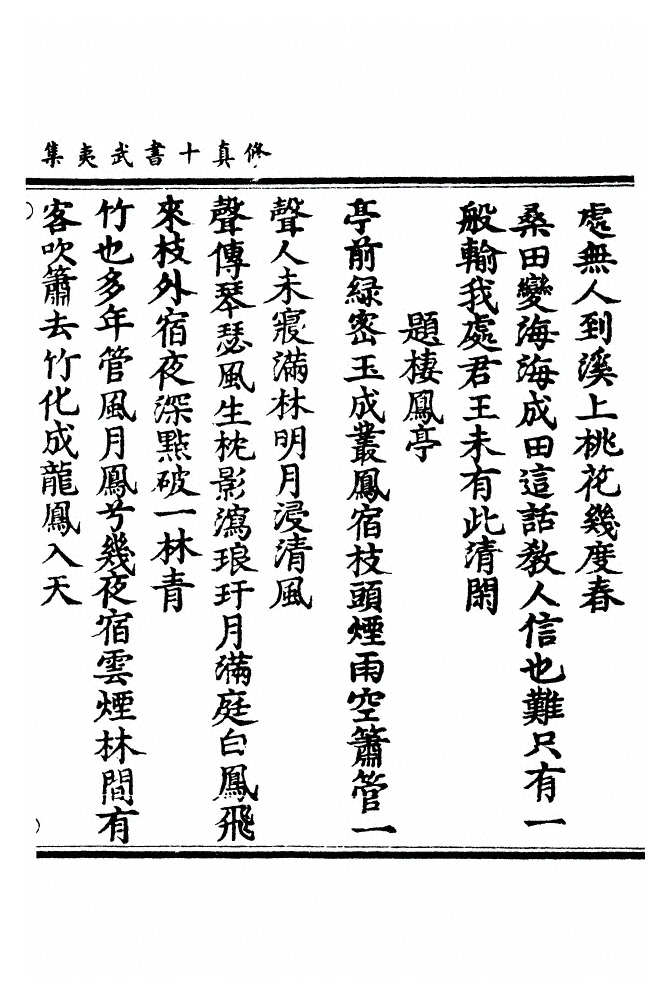 修真十書武夷集
處無人到溪上桃花幾度春
桑田變海海成田這話教人信也難只有一
般輸我處君王未有此清閑
題棲鳳亭
亭前緑宻玉成叢鳳宿枝頭煙雨空簫管一
聲人未寢滿林明月浸清風
聲傳琴瑟風生枕影瀉琅玕月滿庭白鳳飛
來枝外宿夜深點破一林青
竹也多年管風月鳳兮幾夜宿雲煙林間有
客吹簫去竹化成龍鳳入天